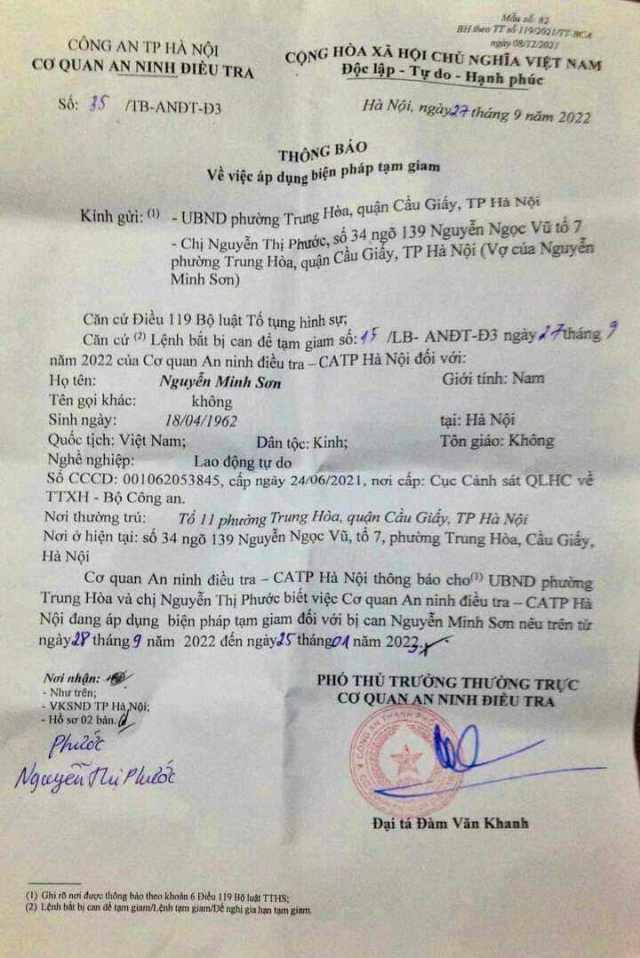 Mẫu số: 82
BH theo TT số 119/2021/TT-BCA
ngày 08/12/2021
CÔNG AN TP HÀ NỘI
CƠ QUAN AN NINH ĐIỀU TRA
CỘNG HÒA XÃ HỘI CHỦ NGHĨA VIỆT NAM
Độc lập - Tự do - Hạnh phúc
Số: 35 /TB-ANĐT-Đ3
Hà Nội, ngày 27 tháng 9 năm 2022
THÔNG BÁO
Về việc áp dụng biện pháp tạm giam
Kính gửi: (1) - UBND phường Trung Hòa, quận Cầu Giấy, TP Hà Nội
- Chị Nguyễn Thị Phước, số 34 ngõ 139 Nguyễn Ngọc Vũ tổ 7
phường Trung Hòa, quận Cầu Giấy, TP Hà Nội (Vợ của Nguyễn
Minh Sơn)
Căn cứ Điều 119 Bộ luật Tố tụng hình sự;
Căn cứ (2) Lệnh bắt bị can để tạm giam số: 15 /LB- ANĐT-Đ3 ngày 27 tháng 9
năm 2022 của Cơ quan An ninh điều tra – CATP Hà Nội đối với:
Họ tên: Nguyễn Minh Sơn Giới tính: Nam
Tên gọi khác: không
Sinh ngày: 18/04/1962 tại: Hà Nội
Quốc tịch: Việt Nam; Dân tộc: Kinh; Tôn giáo: Không
Nghề nghiệp: Lao động tự do
Số CCCD: 001062053845, cấp ngày 24/06/2021, nơi cấp: Cục Cảnh sát QLHC về
TTXH - Bộ Công an.
Nơi thường trú: Tổ 11 phường Trung Hòa, quận Cầu Giấy, TP Hà Nội
Nơi ở hiện tại: số 34 ngõ 139 Nguyễn Ngọc Vũ, tổ 7, phường Trung Hòa, Cầu Giấy,
Hà Nội
Cơ quan An ninh điều tra – CATP Hà Nội thông báo cho(1) UBND phường
Trung Hòa và chị Nguyễn Thị Phước biết việc Cơ quan An ninh điều tra – CATP Hà
Nội đang áp dụng biện pháp tạm giam đối với bị can Nguyễn Minh Sơn nêu trên từ
ngày 28 tháng 9 năm 2022 đến ngày 25 tháng 01 năm 2023.
Nơi nhận:
- Như trên;
- VKSND TP Hà Nội;
- Hồ sơ 02 bản.
Phước
Nguyễn Thị Phước
PHÓ THỦ TRƯỞNG THƯỜNG TRỰC
CƠ QUAN AN NINH ĐIỀU TRA
Đại tá Đàm Văn Khanh
(1) Ghi rõ nơi được thông báo theo khoản 6 Điều 119 Bộ luật TTHS;
(2) Lệnh bắt bị can để tạm giam/Lệnh tạm giam/Đề nghị gia hạn tạm giam.